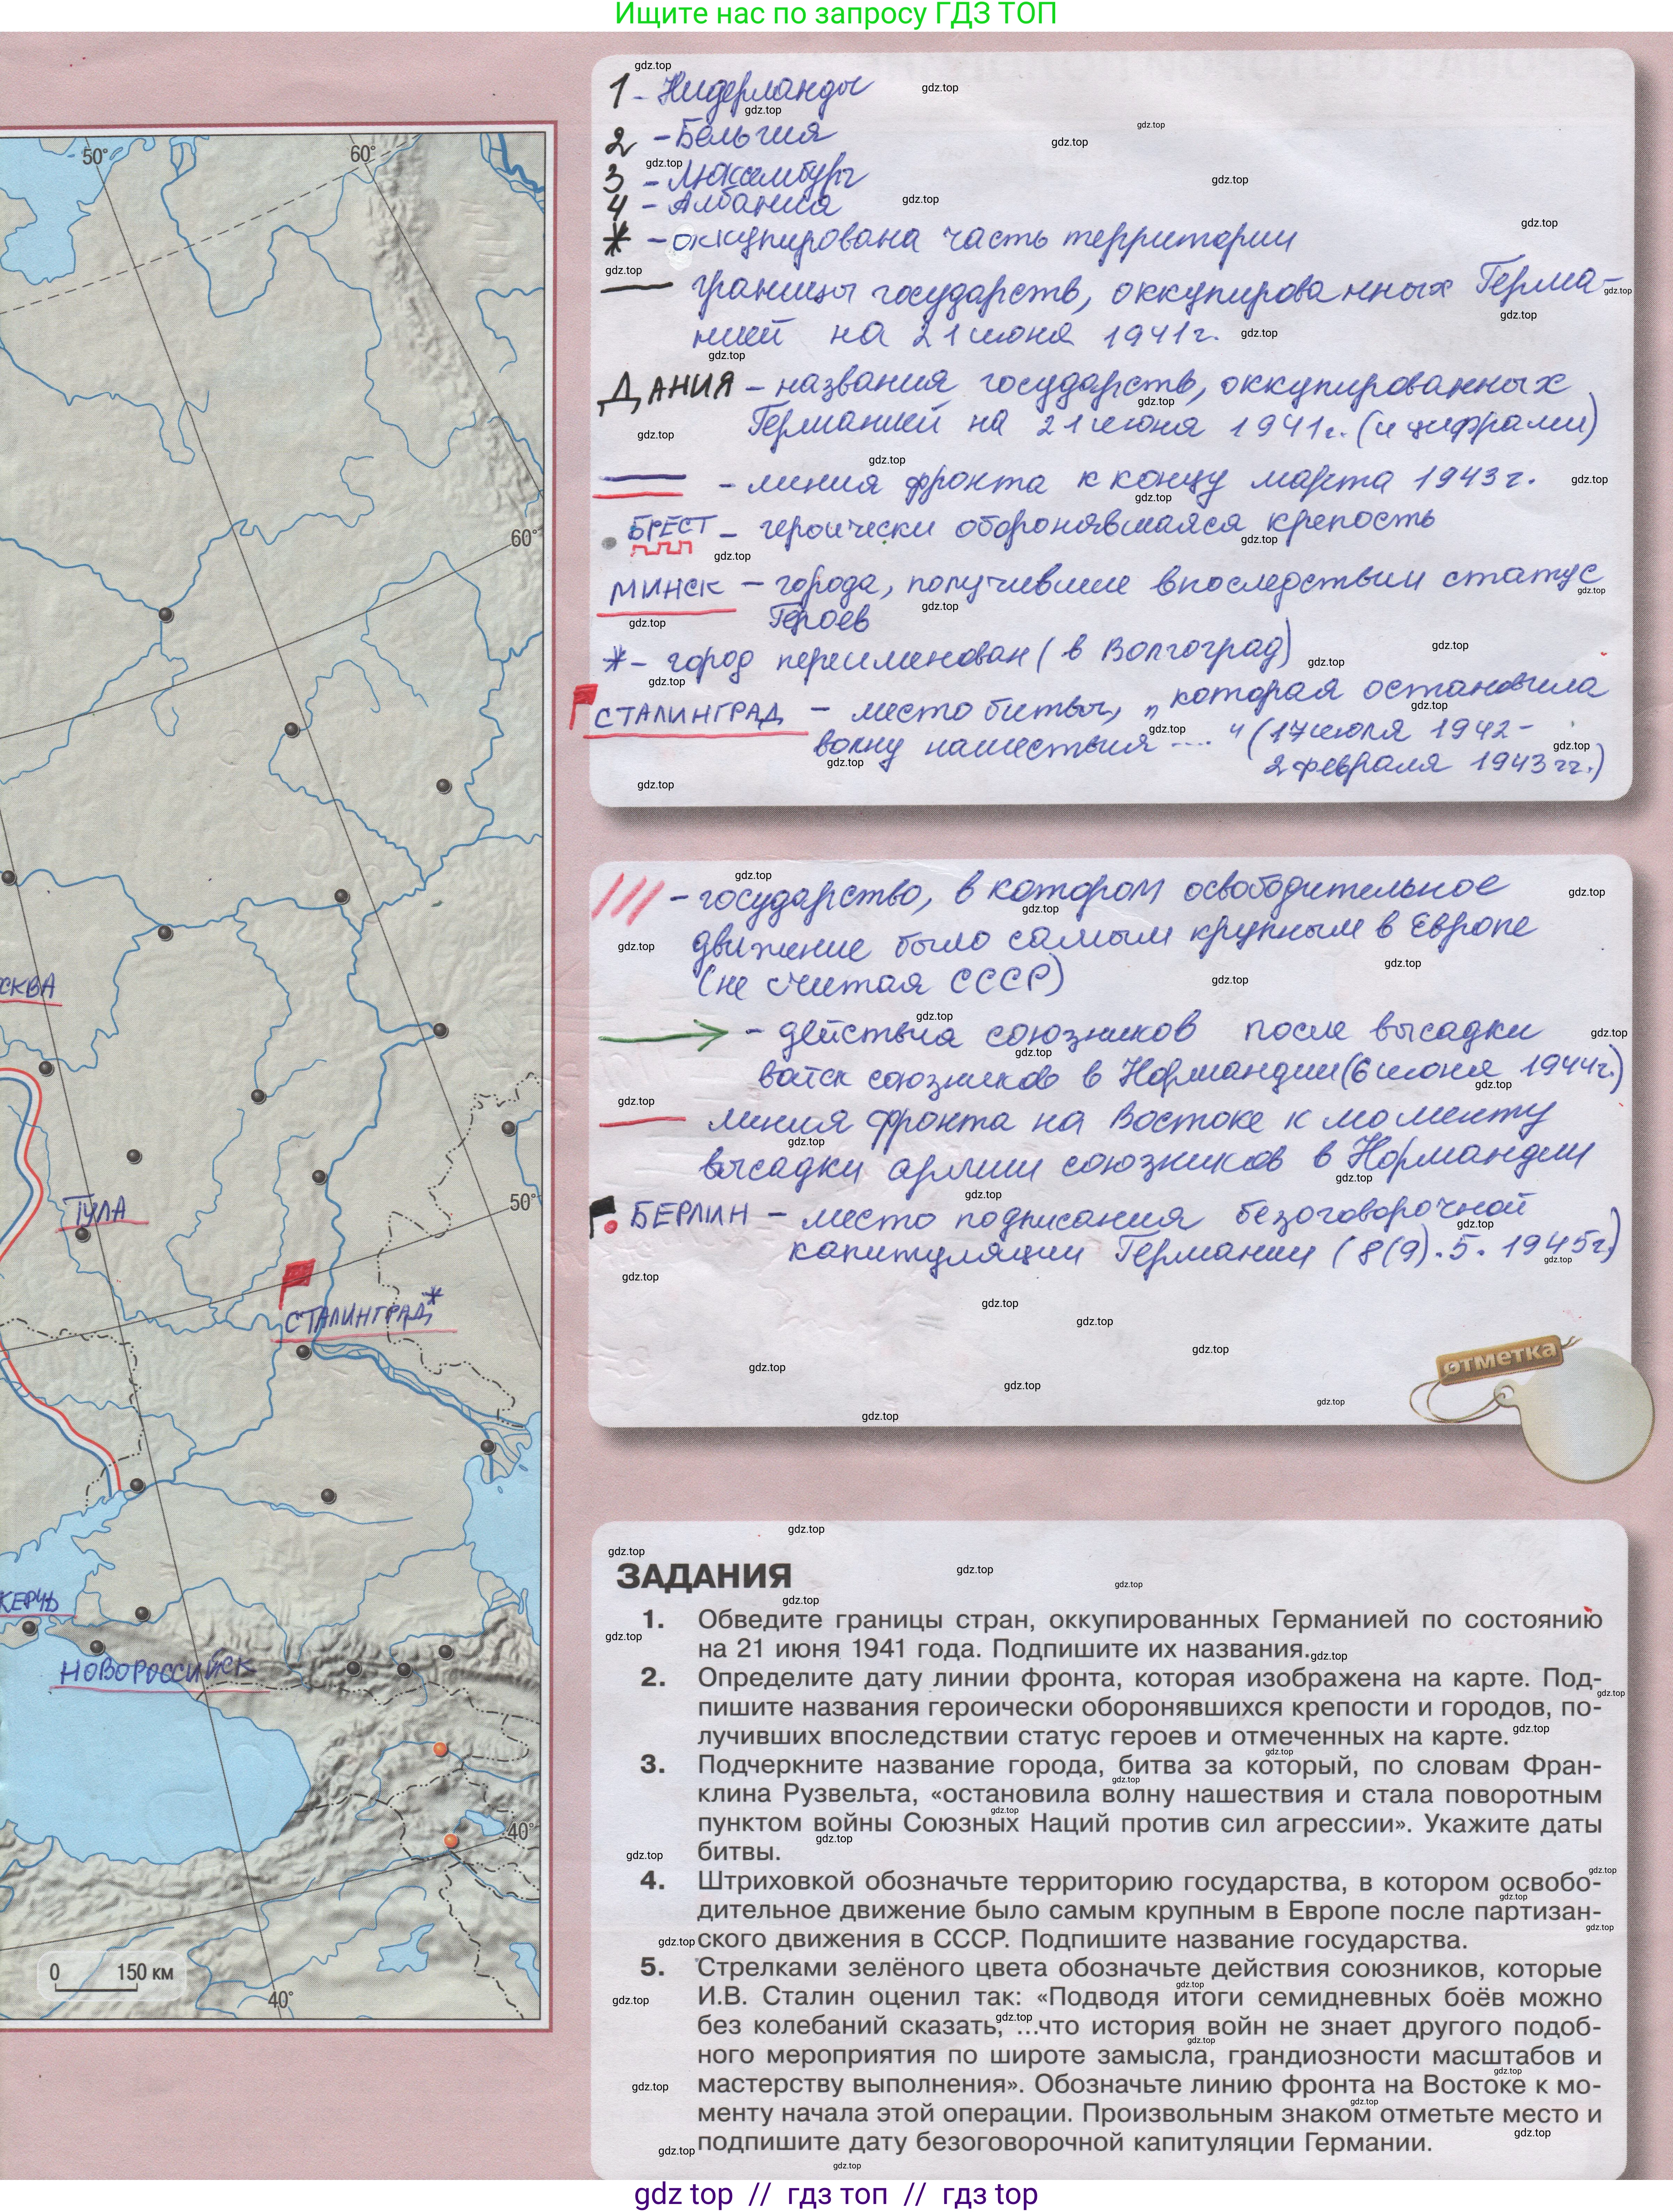 Ищите нас по запросу ГДЗ ТОП
1 - Нидерланды
2 - Бельгия
3 - Люксембург
4 - Албания
* - оккупирована часть территории
границы государств, оккупированных Герма-
нией на 21 июня 1941г.
ДАНИЯ - названия государств, оккупированных
Германией на 21 июня 1941г. (и цифрами)
- линия фронта к концу марта 1943г.
БРЕСТ - героически оборонявшаяся крепость
МИНСК - города, получившие впоследствии статус
Героев
* - город переименован (в Волгоград)
СТАЛИНГРАД - место битвы, "которая остановила
волну нашествия ...." (17 июля 1942-
2 февраля 1943 гг.)
/// - государство, в котором освободительное
движение было самым крупным в Европе
(не считая СССР)
- действия союзников после высадки
войск союзников в Нормандии (6 июня 1944г.)
линия фронта на Востоке к моменту
высадки армии союзников в Нормандии
БЕРЛИН - место подписания безоговорочной
капитуляции Германии (8(9).5.1945г.)
отметка
50°
60°
60°
СКВА
50°
ТУЛА
СТАЛИНГРАД*
КЕРЧЬ
НОВОРОССИЙСК
40°
0 150 км
40°
ЗАДАНИЯ
1. Обведите границы стран, оккупированных Германией по состоянию
на 21 июня 1941 года. Подпишите их названия.
2. Определите дату линии фронта, которая изображена на карте. Под-
пишите названия героически оборонявшихся крепости и городов, по-
лучивших впоследствии статус героев и отмеченных на карте.
3. Подчеркните название города, битва за который, по словам Фран-
клина Рузвельта, «остановила волну нашествия и стала поворотным
пунктом войны Союзных Наций против сил агрессии». Укажите даты
битвы.
4. Штриховкой обозначьте территорию государства, в котором освобо-
дительное движение было самым крупным в Европе после партизан-
ского движения в СССР. Подпишите название государства.
5. Стрелками зелёного цвета обозначьте действия союзников, которые
И.В. Сталин оценил так: «Подводя итоги семидневных боёв можно
без колебаний сказать, ...что история войн не знает другого подоб-
ного мероприятия по широте замысла, грандиозности масштабов и
мастерству выполнения». Обозначьте линию фронта на Востоке к мо-
менту начала этой операции. Произвольным знаком отметьте место и
подпишите дату безоговорочной капитуляции Германии.
gdz top // гдз топ // гдз top